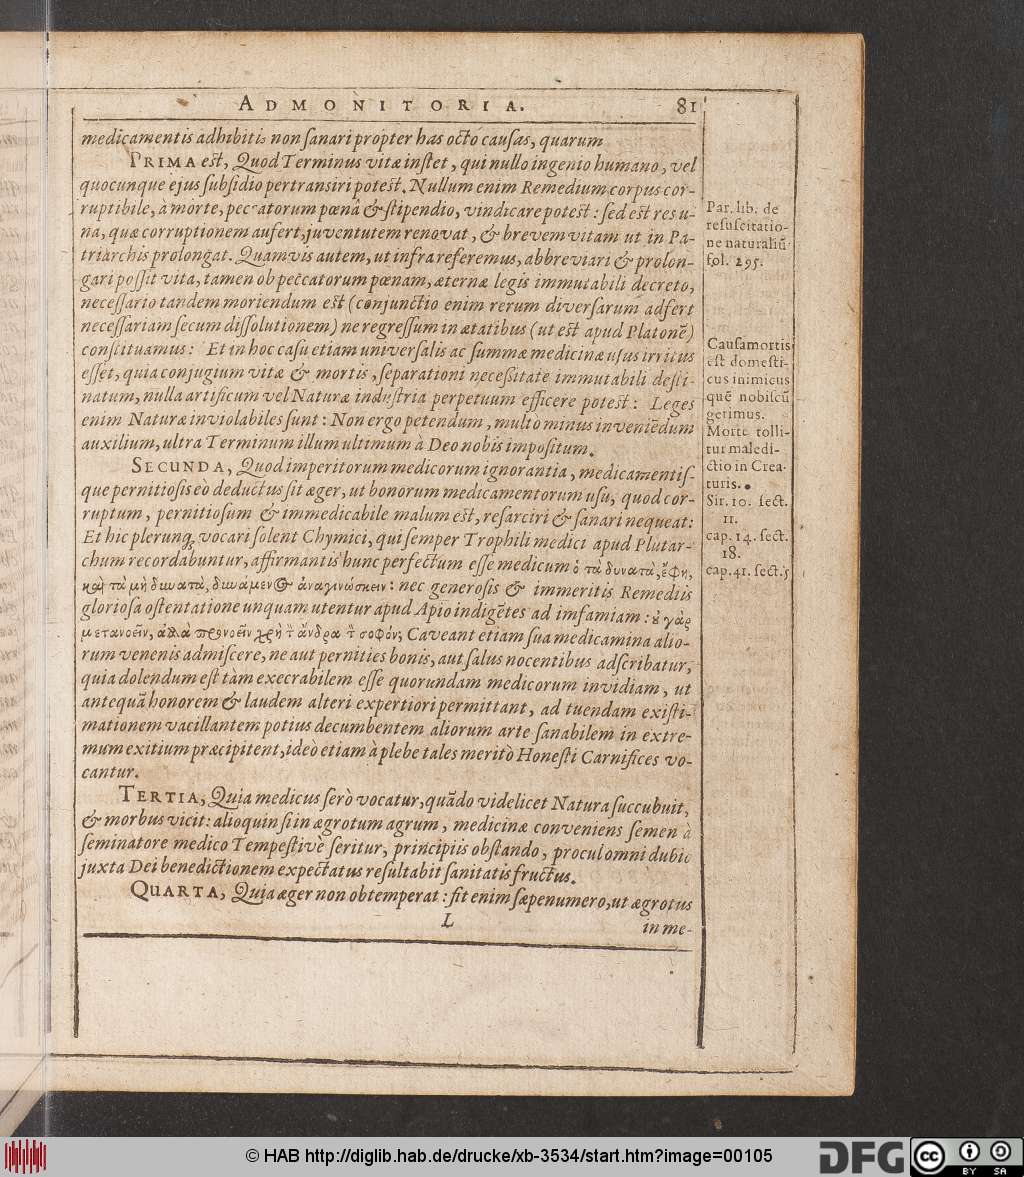 ADMONITORIA. 81
medicamentis adhibitis non sanari propter has octo causas, quarum
PRIMA est, Quod Terminus vitæ instet, qui nullo ingenio humano, vel
quocunque ejus subsidio pertransiri potest. Nullum enim Remedium corpus cor-
ruptibile, à morte, peccatorum pœnâ & stipendio, vindicare potest: sed est res u-
na, quæ corruptionem aufert, juventutem renovat, & brevem vitam ut in Pa-
triarchis prolongat. Quamvis autem, ut infra referemus, abbreviari & prolon-
gari possit vita, tamen ob peccatorum pœnam, æternæ legis immutabili decreto,
necessario tandem moriendum est (conjunctio enim rerum diversarum adfert
necessariam secum dissolutionem) ne regressum in ætatibus (ut est apud Platonē)
constituamus: Et in hoc casu etiam universalis ac summæ medicinæ usus irritus
esset, quia conjugium vitæ & mortis, separationi necessitate immutabili desti-
natum, nulla artificum vel Naturæ industria perpetuum efficere potest: Leges
enim Naturæ inviolabiles sunt: Non ergo petendum, multo minus inveniēdum
auxilium, ultra Terminum illum ultimum à Deo nobis impositum.
SECUNDA, Quod imperitorum medicorum ignorantia, medicamentis-
que pernitiosis eò deductus sit æger, ut bonorum medicamentorum usu, quod cor-
ruptum, pernitiosum & immedicabile malum est, resarciri & sanari nequeat:
Et hic plerunq; vocari solent Chymici, qui semper Trophili medici apud Plutar-
chum recordabuntur, affirmantis hunc perfectum esse medicum ὁ τὰ δυνατὰ, ἔφη,
καὶ τὰ μὴ δυνατὰ, δυνάμενος ἀναγινώσκειν: nec generosis & immeritis Remediis
gloriosa ostentatione unquam utentur apud Apio indigētes ad infamiam: ȣ γὰρ
μετανοεῖν, ἀλλὰ προνοεῖν χρὴ τ̀ ἄνδρα τ̀ σοφόν; Caveant etiam sua medicamina alio-
rum venenis admiscere, ne aut pernities bonis, aut salus nocentibus adscribatur,
quia dolendum est tàm execrabilem esse quorundam medicorum invidiam, ut
antequā honorem & laudem alteri expertiori permittant, ad tuendam existi-
mationem vacillantem potius decumbentem aliorum arte sanabilem in extre-
mum exitium præcipitent, ideò etiam à plebe tales meritò Honesti Carnifices vo-
cantur.
TERTIA, Quia medicus serò vocatur, quādo videlicet Natura succubuit,
& morbus vicit: alioquin si in ægrotum agrum, medicinæ conveniens semen à
seminatore medico Tempestivè seritur, principiis obstando, procul omni dubio
juxta Dei benedictionem expectatus resultabit sanitatis fructus.
QUARTA, Quia æger non obtemperat: fit enim sæpenumero, ut ægrotus
L in me-
Par. lib. de
resuscitatio-
ne naturaliū
fol. 295.
Causa mortis
est domesti-
cus inimicus
quē nobiscū
gerimus.
Morte tolli-
tur maledi-
ctio in Crea-
turis.
Sir. 10. sect.
11.
cap. 14. sect.
18.
cap. 41. sect. 5
© HAB http://diglib.hab.de/drucke/xb-3534/start.htm?image=00105
DFG cc BY SA